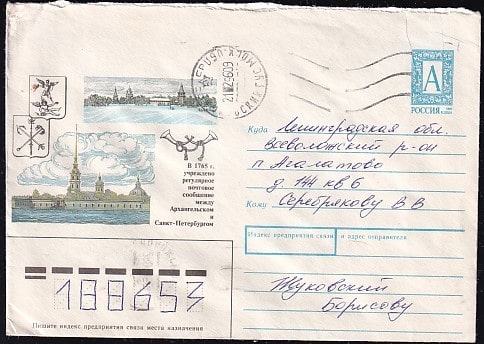 А
РОССИЯ
Куда Ленинградская обл.
Всеволожский р-он
п Агалатово
д 144 кв 6
Кому Серебрякову В В
В 1765 г.
учреждено
регулярное
почтовое
сообщение
между
Архангельском
и
Санкт-Петербургом
Индекс предприятия связи и адрес отправителя
Жуковский
Борисову
188653
Пишите индекс предприятия связи места назначения